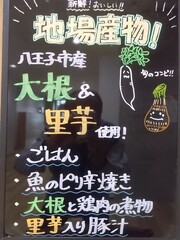 新鮮!おいしい!!
地場産物!
八王子市産
大根&
旬のコンビ!!
里芋使用!
・ごはん
・魚のピリ辛焼き
・大根と鶏肉の煮物
・里芋入り豚汁